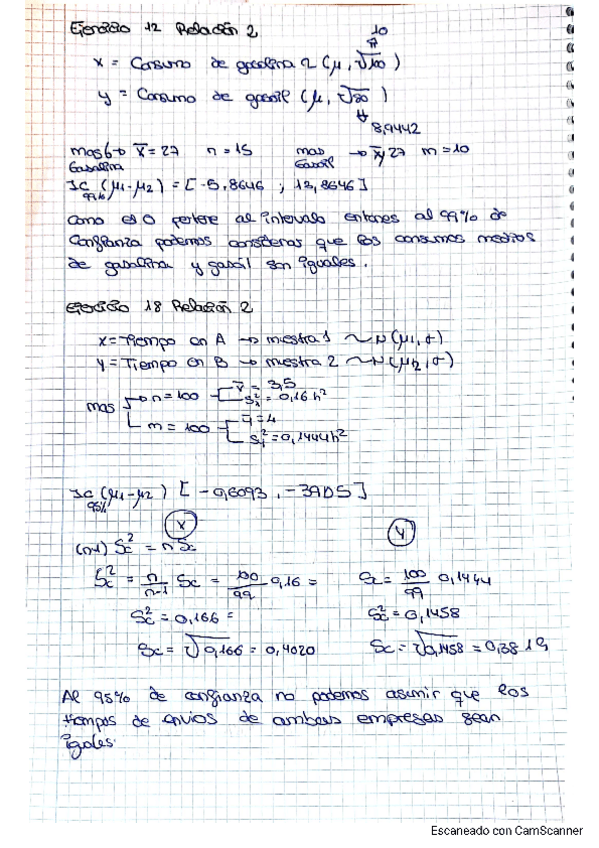 Ejercicio 12 Relación 2
10
x = Consumo de gasolina 2 (μ, √100)
y = Consumo de gasoil (μ, √80)
8,9442
mas 6 → x̄ = 27 n = 15 mas → ȳ 27 m = 10
Gasolina Gasoil
IC (μ1-μ2) = [-5,8646 ; 12,8646]
99%
Como el 0 pertence al intervalo entonces al 99% de
Confianza podemos considerar que los consumos medios
de gasolina y gasoil son iguales.
Ejercicio 18 Relación 2
x = Tiempo en A → mestra 1 ~ N(μ1, σ)
y = Tiempo en B → mestra 2 ~ N(μ2, σ)
mas → n = 100 x̄ = 3,5
s₁² = 0,16 h²
m = 100 ȳ = 4
s₁² = 0,1444 h²
IC (μ1-μ2) [-0,6093, -3905]
95%
x y
(n-1) Sc² = n Sc
Sc² = n/n-1 Sc = 100/99 0,16 = Sc = 100/99 0,1444
Sc² = 0,166 = Sc² = 0,1458
Sc = √0,166 = 0,4020 Sc = √0,1458 = 0,3819
Al 95% de confianza no podemos asumir que los
tiempos de envios de ambas empresas sean
igales.
Escaneado con CamScanner